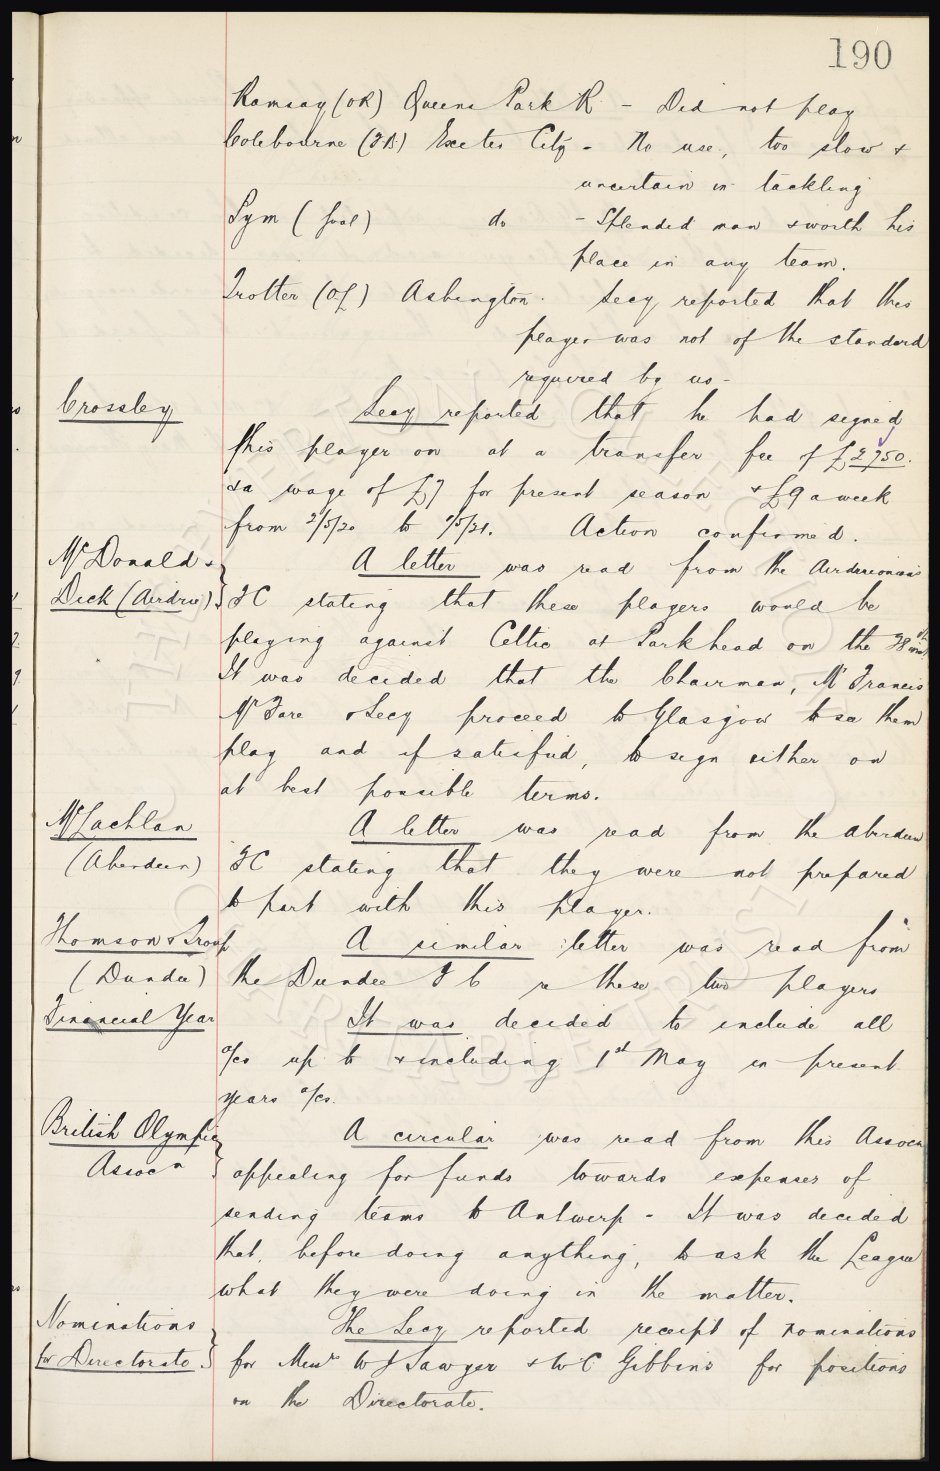 190
Ramsay (OR) Queens Park R - Did not play
Colebourne (FB) Exeter City - No use, too slow &
uncertain in tackling
Pym (Goal) do - Splended man & worth his
place in any team.
Trotter (OL) Ashington. Secy reported that this
player was not of the standard
required by us -
Crossley Secy reported that he had signed
this player on at a transfer fee of £2750.
& a wage of £7 for present season & £9 a week
from 2/5/20 to 1/5/21. Action confirmed.
McDonald & A letter was read from the Airdrieonians
Dick (Airdrie) FC stating that these players would be
playing against Celtic at Parkhead on the 28th inst
It was decided that the Chairman, Mr Francis
Mr Fare & Secy proceed to Glasgow to see them
play and if satisfied, to sign either on
at best possible terms.
McLachlan A letter was read from the Aberdeen
(Aberdeen) FC stating that they were not prepared
to part with this player.
Thomson & Troup A similar letter was read from
(Dundee) the Dundee F C re these two players
Financial Year It was decided to include all
a/cs up to & including 1st May in present
years a/cs.
British Olympic A circular was read from this Assocn
Assocn appealing for funds towards expenses of
sending teams to Antwerp - It was decided
that, before doing anything, to ask the League
what they were doing in the matter.
Nominations The Secy reported receipt of nominations
for Directorate. for Messrs W J Sawyer & W C Gibbins for positions
on the Directorate.